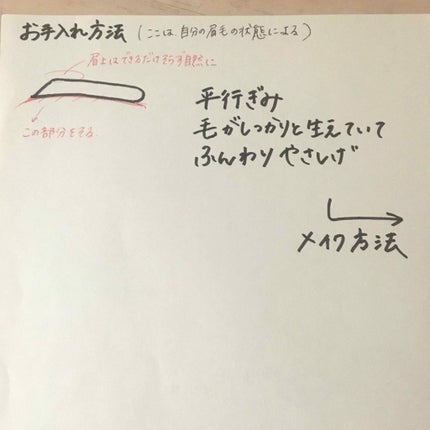 お手入れ方法（ここは、自分の眉毛の状態による）
眉上はできるだけそらず自然に
この部分をそる。
平行ぎみ
毛がしっかりと生えていて
ふんわりやさしげ
メイク方法